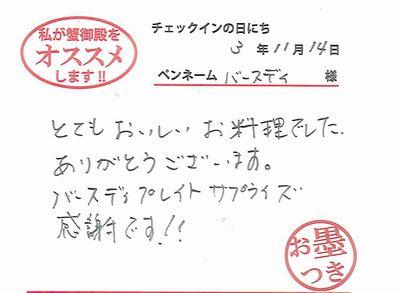 私が蟹御殿を
オススメ
します!!
チェックインの日にち
3年11月14日
ペンネーム バースディ 様
とてもおいしいお料理でした.
ありがとうございます。
バースディプレイトサプライズ
感謝です!!
お墨
つき